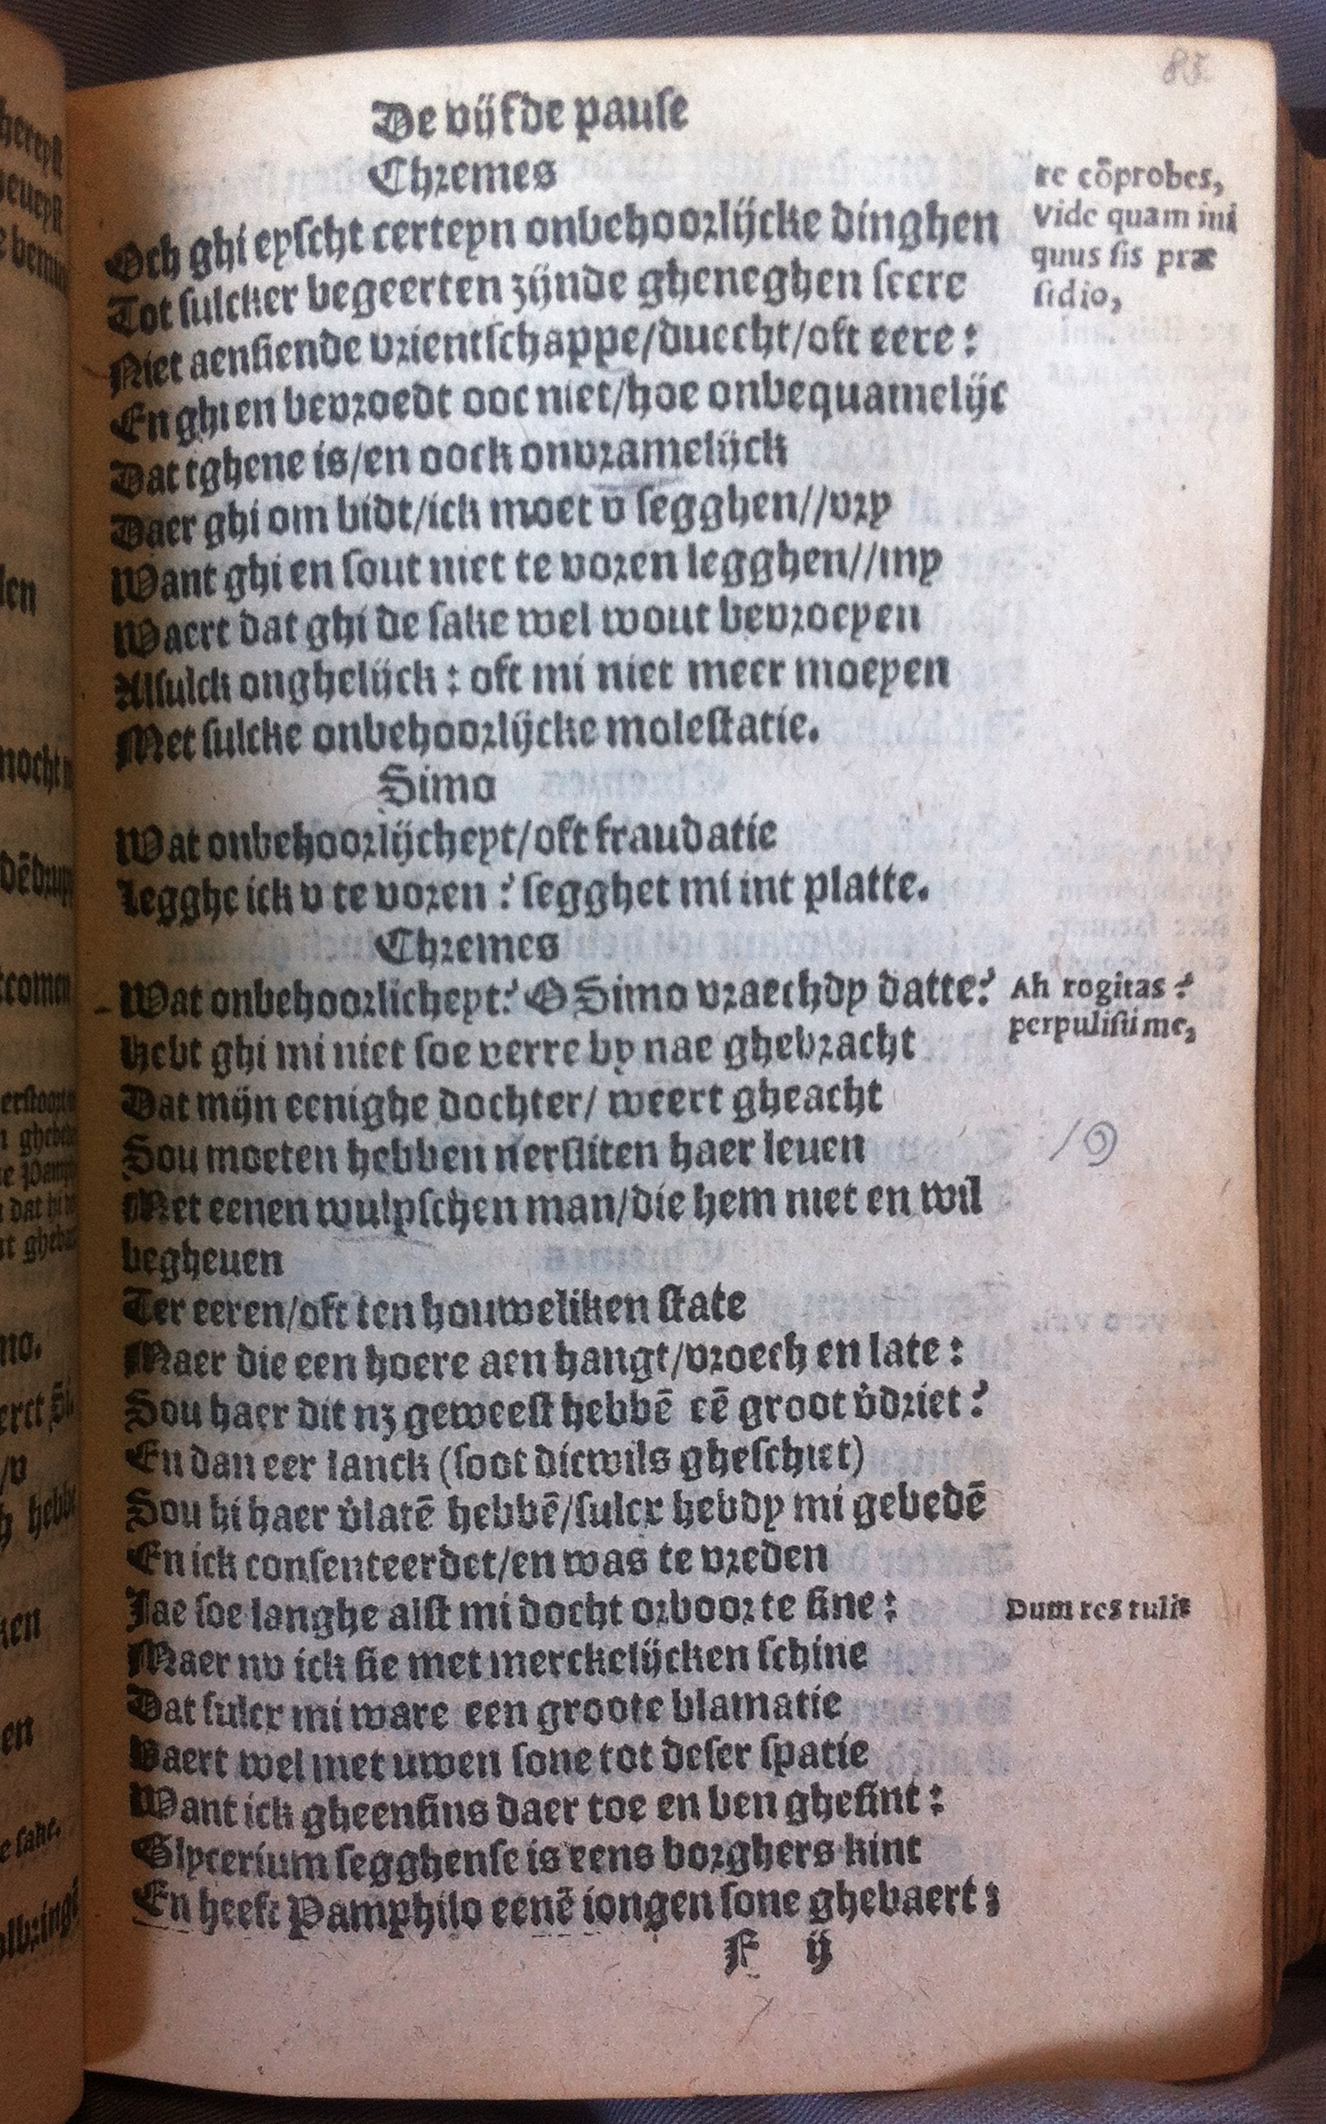 85
De vijfde pause
Chremes
re cōprobes,
Vide quam ini
quus sis præ
sidio,
Och ghi eyscht certeyn onbehoorlijcke dinghen
Tot sulcker begeerten zijnde gheneghen seere
Niet aensiende vrientschappe/duecht/oft eere:
En ghi en bevroedt ooc niet/hoe onbequamelijc
Dat tghene is/en oock onvramelijck
Daer ghi om bidt/ick moet v segghen//vry
Want ghi en sout niet te voren legghen//my
Waert dat ghi de sake wel wout bevroeyen
Alsulck onghelijck: oft mi niet meer moeyen
Met sulcke onbehoorlijcke molestatie.
Simo
Wat onbehoorlijcheyt/oft fraudatie
Legghe ick v te voren? segghet mi int platte.
Chremes
Wat onbehoorlicheyt? O Simo vraechdy datte?
Ah rogitas?
perpulisti me,
Hebt ghi mi niet soe verre by nae ghebracht
Dat mijn eenighe dochter/ weert gheacht
Sou moeten hebben versliten haer leuen
19
Met eenen wulpschen man/die hem niet en wil
begheuen
Ter eeren/oft ten houweliken state
Maer die een hoere aen hangt/vroech en late:
Sou haer dit nz geweest hebbē eē groot v̾driet?
En dan eer lanck (soot dicwils gheschiet)
Sou hi haer v̾latē hebbē/sulcx hebdy mi gebedē
En ick consenteerdet/en was te vreden
Jae soe langhe alst mi docht orboor te sine:
Dum res tulit
Maer nv ick sie met merckelijcken schine
Dat sulcx mi ware een groote blamatie
Vaert wel met uwen sone tot deser spatie
Want ick gheensins daer toe en ben ghesint:
Glycerium segghense is eens borghers kint
En heeft Pamphilo eenē iongen sone ghebaert;
F ij